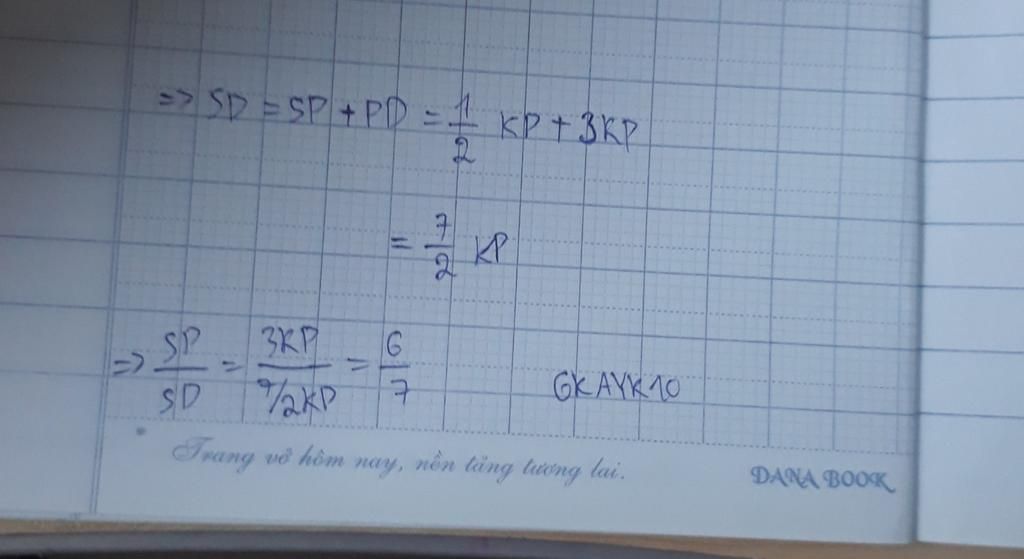 => SD = SP + PD = 1/2 KP + 3KP
= 7/2 KP
=> SP/SD = 3KP/7/2KP = 6/7
GKAYK10
Trang vở hôm nay, nền tảng tương lai.
DANA BOOK